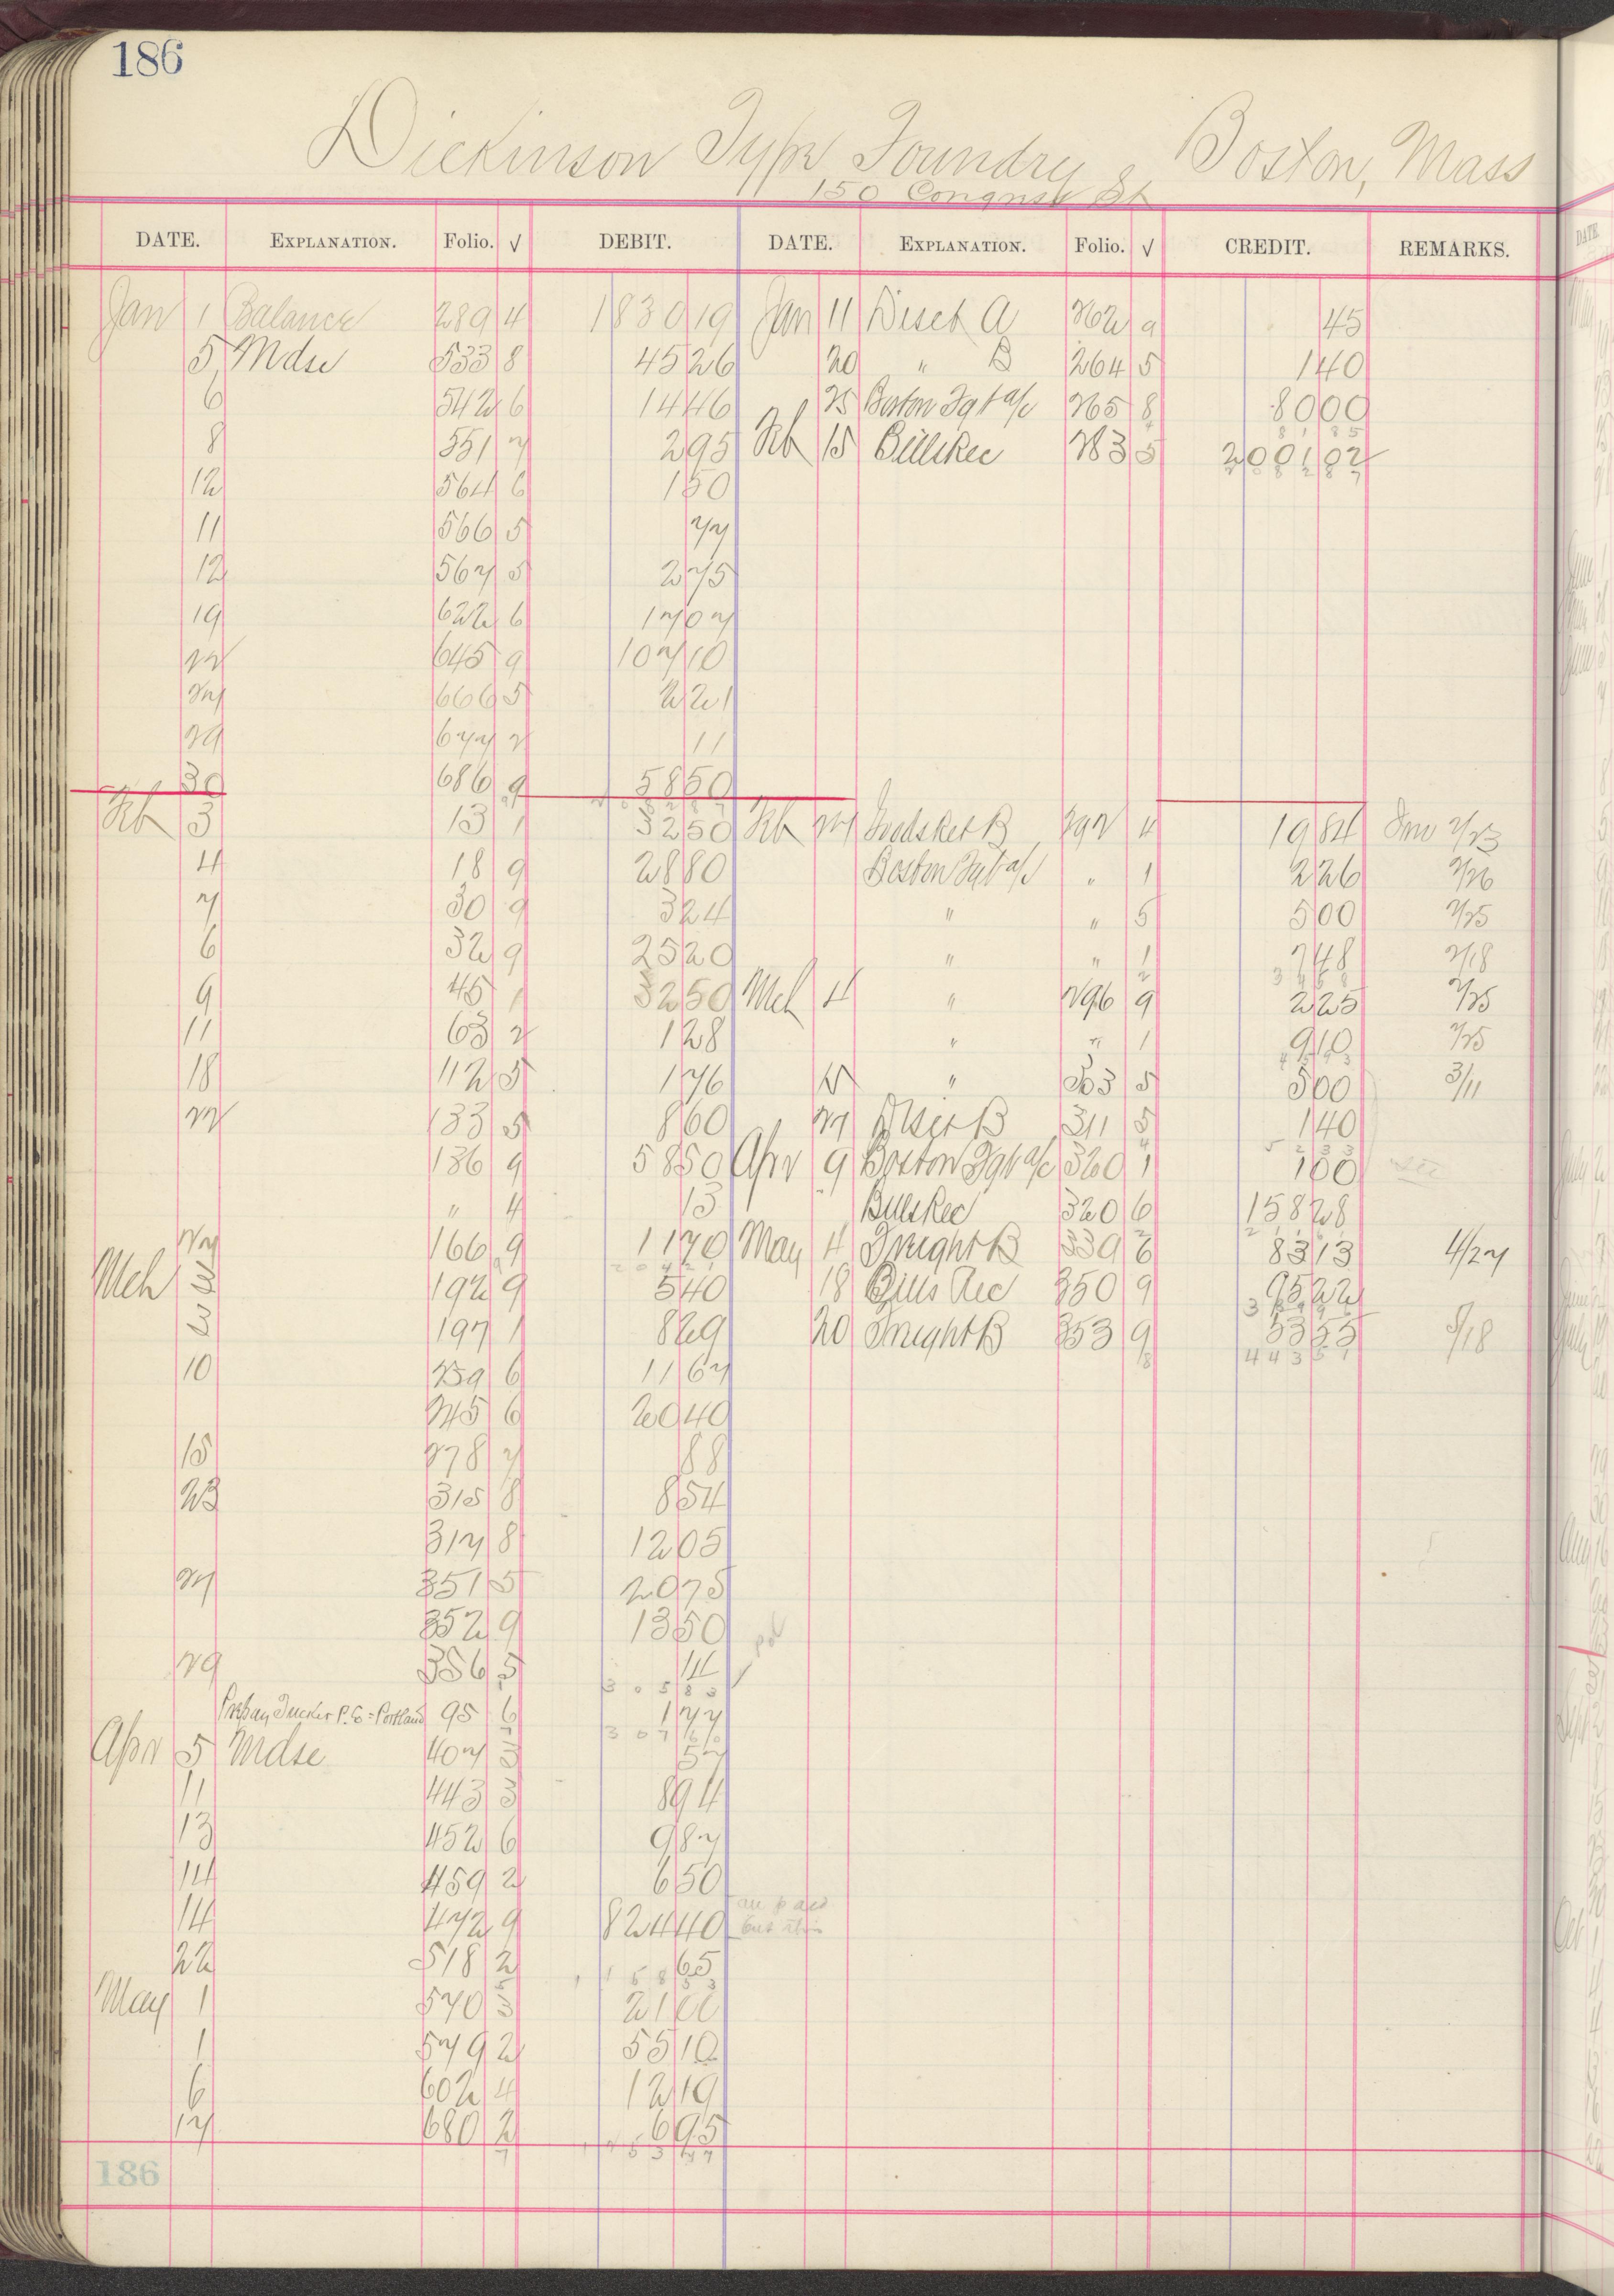 186
Dickinson Type Foundry Boston, Mass
150 Congress St
DATE. EXPLANATION. Folio. √ DEBIT. DATE. EXPLANATION. Folio. √ CREDIT. REMARKS.
Jan 1 Balance 289 4 1830 19 Jan 11 Disct A 262 9 45
5 Mdse 533 8 45 26 20 " B 264 5 1 40
6 542 6 14 46 25 Boston Fgt a/c 265 8 80 00
8 551 7 2 95 Feb 15 Bills Rec 283 5 2001 02
12 564 6 1 50
11 566 5 77
12 567 5 2 75
19 622 6 17 07
22 645 9 107 10
27 666 5 2 21
29 677 2 11
30 686 9 58 50
Feb 3 13 1 32 50 Feb 27 B 292 4 19 84 Inv 2/23
4 18 9 28 80 Boston Fgt a/c " 1 2 26 2/26
7 30 9 3 24 " " 5 5 00 2/25
6 32 9 25 20 " " 1 7 48 2/18
9 45 1 32 50 Mch 4 " 296 9 2 25 2/25
11 63 2 1 28 " " 1 9 10 2/25
18 112 5 1 76 " 303 5 5 00 3/11
22 133 5 8 60 27 Disct B 311 5 1 40
136 9 58 50 Apr 9 Boston Fgt a/c 320 1 1 00
" 4 13 Bills Rec 320 6 158 28
27 166 9 11 70 May 4 Freight B 339 6 83 13 4/27
Mch 2 192 9 5 40 18 Bills Rec 350 9 95 22
2 197 1 8 29 20 Freight B 353 9 53 55 5/18
44351
10 239 6 11 67
245 6 20 40
15 278 7 88
23 315 8 8 54
317 8 12 05
27 351 5 20 75
352 9 13 50
29 356 5 14 pd
30583
Prepay Tucker P. Co = Portland 95 6 1 77
30760
Apr 5 Mdse 407 3 57
11 443 3 8 94
13 452 6 9 87
14 459 2 6 50
14 472 9 824 40
22 518 2 65
May 1 570 3 21 00
1 579 2 55 10
6 602 4 12 19
17 680 2 6 95
186